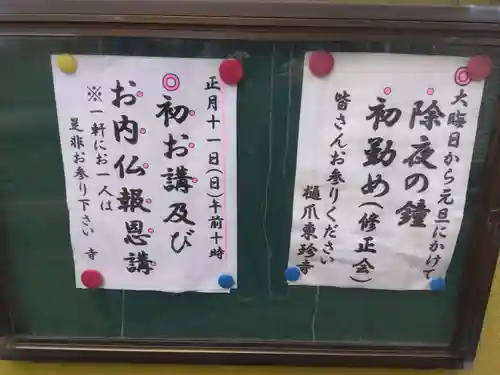 ◎大晦日から元旦にかけて
除夜の鐘
初勤め(修正会)
皆さんお参りください
樋爪東珍寺
正月十一日(日)午前十時
◎初お講及び
お内仏報恩講
※一軒にお一人は
是非お参り下さい 寺